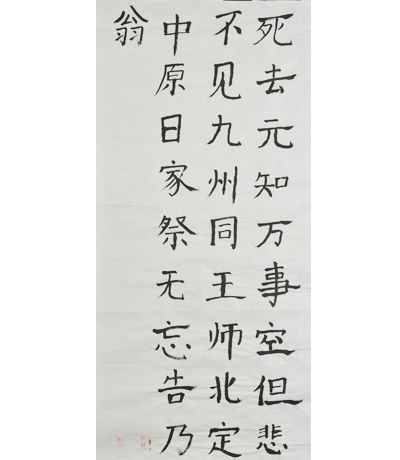 死去元知万事空但悲
不见九州同王师北定
中原日家祭无忘告乃
翁